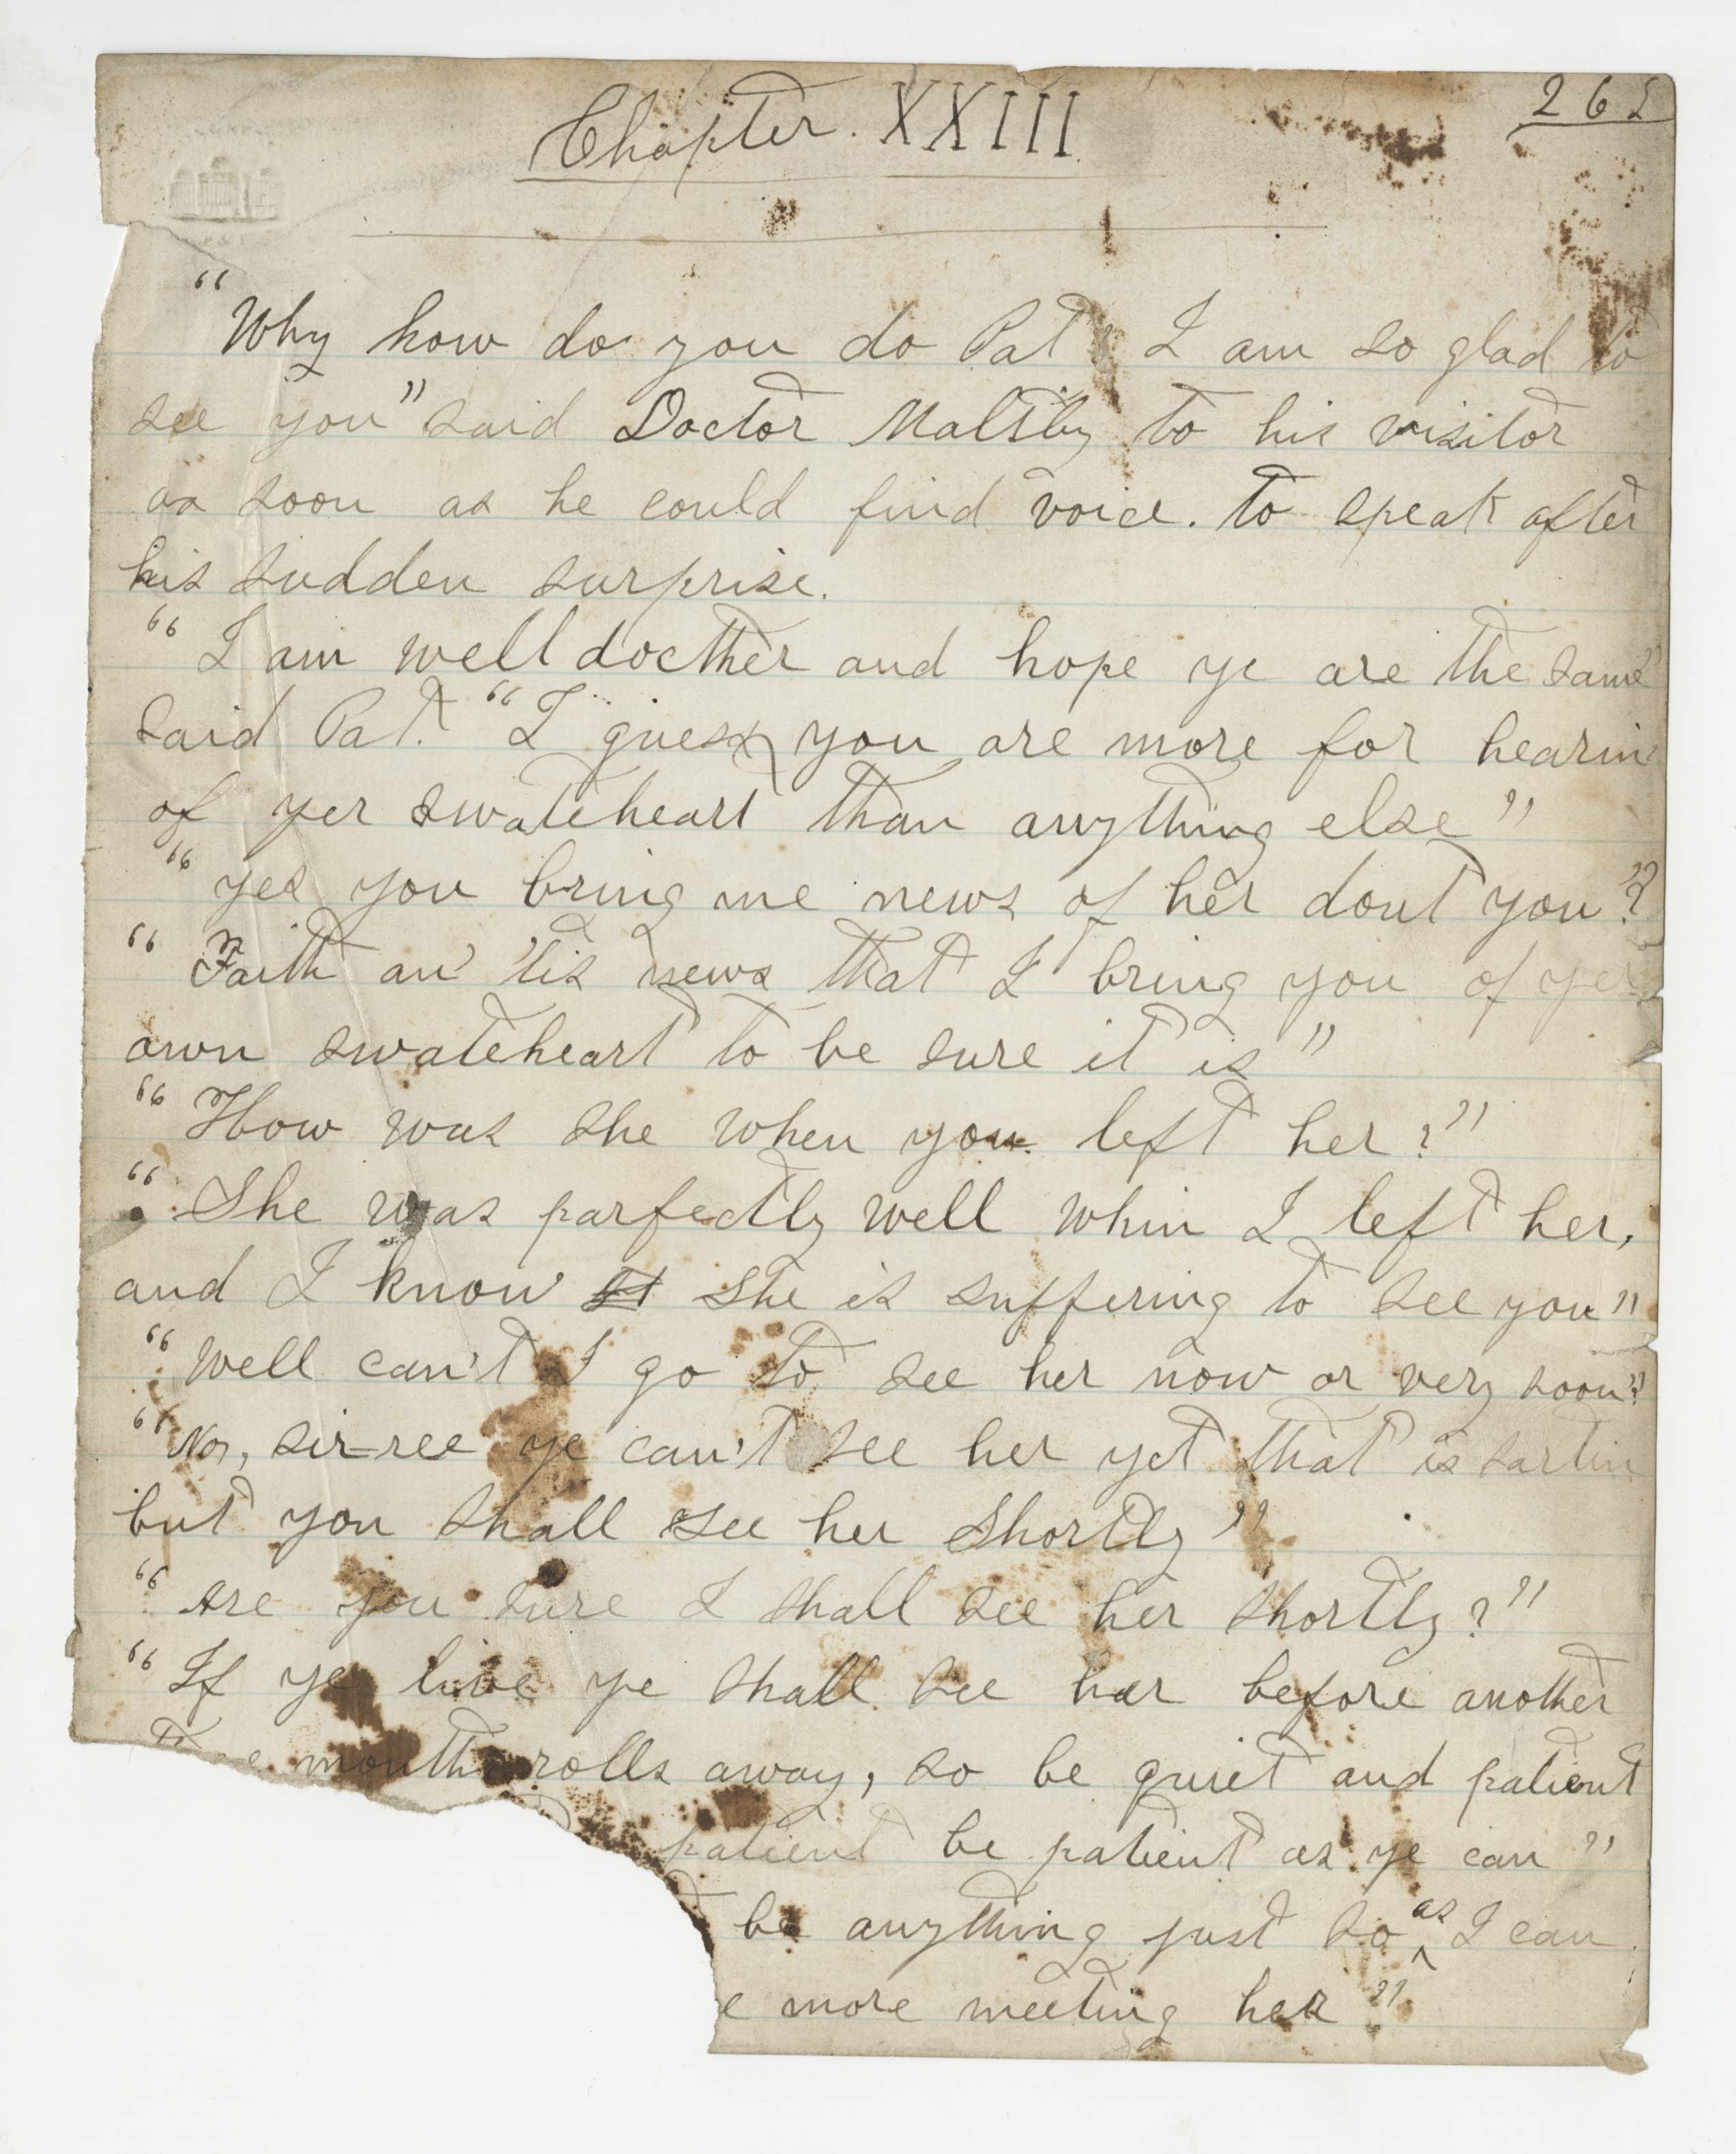 Chapter. XXIII
262
"Why how do you do Pat? I am so glad to
see you" said Doctor Maltsby to his visitor
as soon as he could find voice. to speak after
his sudden surprise.
"I am well docther and hope ye are the same"
said Pat. "I guess you are more for hearin'
of yer swateheart than anything else"
"yes you bring me news of her dont you"?
"Faith an' 'tis news that I bring you of yer
own swateheart to be sure it is"
"How was she when you left her?"
"She was parfectly well whin I left her,
and I know she is suffering to see you"
"Well can't I go to see her now or very soon"?
"No, sir-ree ye can't see her yet that is sartin
but you shall see her shortly"
"Are you sure I shall see her shortly?"
"If ye live ye shall see her before another
month rolls away, so be quiet and patient
patient be patient as ye can"
be anything just so as I can
more meeting her"